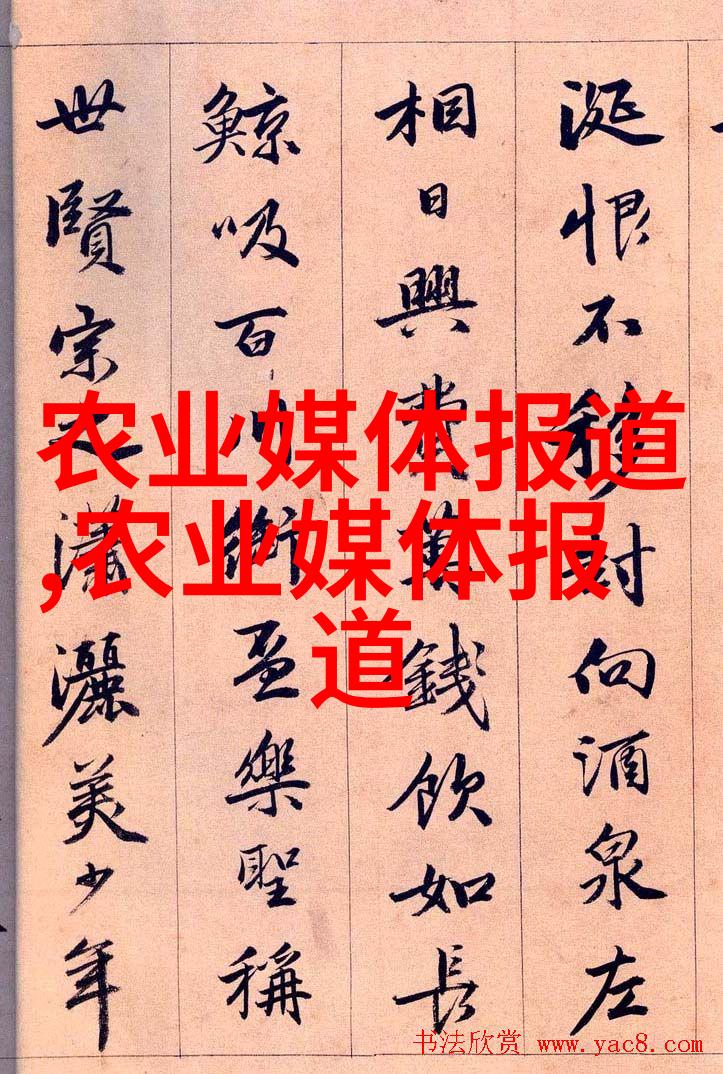 涎恨不移封向酒泉左
相日興費萬錢飲如長
鯨吸百川銜盃樂聖稱
世賢宗之瀟灑美少年
农业媒体报道
,农业媒体报
道
书法欣赏 www.yac8.com